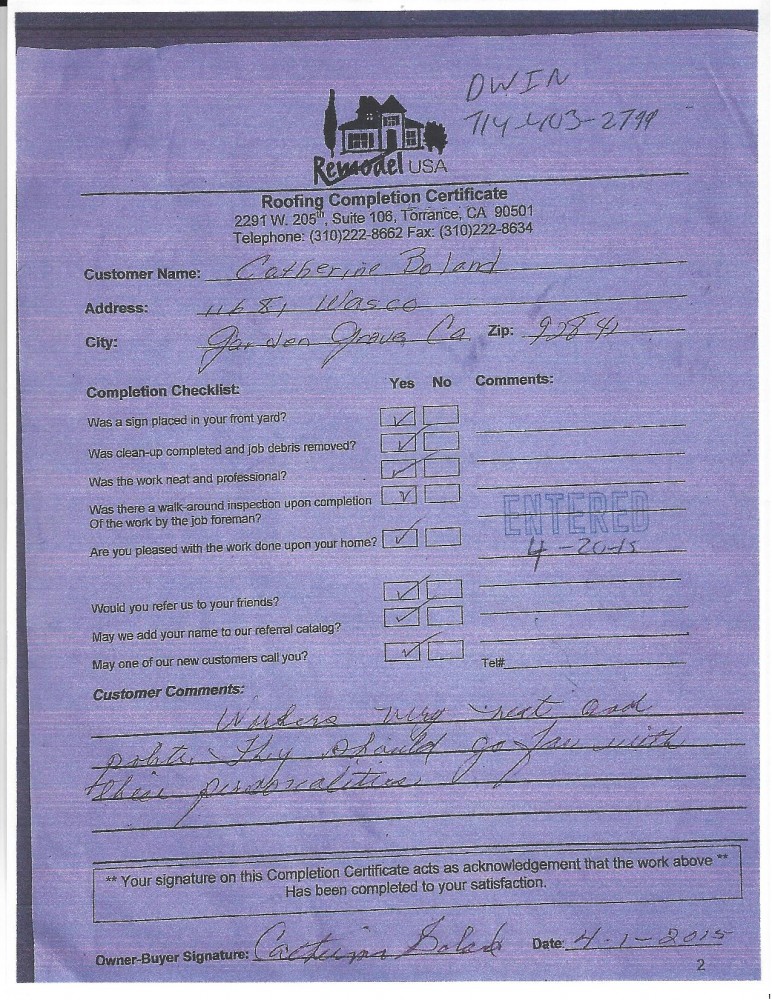 DWIN
714-403-2799
Remodel USA
Roofing Completion Certificate
2291 W. 205th, Suite 106, Torrance, CA 90501
Telephone: (310)222-8662 Fax: (310)222-8634
Customer Name: Catherine Boland
Address: 11681 Wasco
City: Garden Grove, Ca Zip: 92841
Completion Checklist: Yes No Comments:
Was a sign placed in your front yard?
Was clean-up completed and job debris removed?
Was the work neat and professional?
Was there a walk-around inspection upon completion
Of the work by the job foreman?
ENTERED
4-20-15
Are you pleased with the work done upon your home?
Would you refer us to your friends?
May we add your name to our referral catalog?
May one of our new customers call you?
Tel#
Customer Comments:
Workers very neat and
polite. They should go far with
their personalities
** Your signature on this Completion Certificate acts as acknowledgement that the work above **
Has been completed to your satisfaction.
Owner-Buyer Signature: Catherine Boland Date: 4-1-2015
2